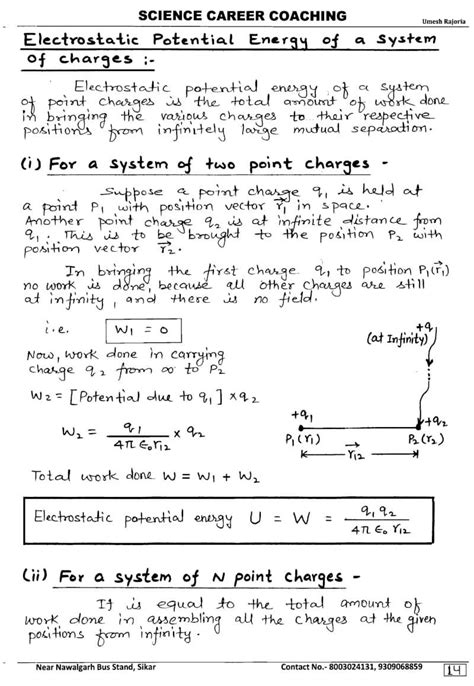 SCIENCE CAREER COACHING
Umesh Rajoria
Electrostatic Potential Energy of a System
of charges :-
Electrostatic potential energy of a system
of point charges is the total amount of work done
in bringing the various charges to their respective
positions from infinitely large mutual separation.
(i) For a system of two point charges -
Suppose a point charge q₁ is held at
a point P₁ with position vector r⃗₁ in space.
Another point charge q₂ is at infinite distance from
q₁. This is to be brought to the position P₂ with
position vector r⃗₂.
In bringing the first charge q₁ to position P₁(r⃗₁)
no work is done, because all other charges are still
at infinity, and there is no field.
i.e. W₁ = 0
Now, work done in carrying
charge q₂ from ∞ to P₂
W₂ = [Potential due to q₁] × q₂
W₂ = q₁ / 4π ε₀ r₁₂ × q₂
+q
(at Infinity)
+q₁ +q₂
P₁(r₁) P₂(r₂)
r⃗₁₂
Total work done W = W₁ + W₂
Electrostatic potential energy U = W = q₁ q₂ / 4π ε₀ r₁₂
(ii) For a system of N point charges -
It is equal to the total amount of
work done in assembling all the charges at the given
positions from infinity.
Near Nawalgarh Bus Stand, Sikar
Contact No.- 8003024131, 9309068859
14